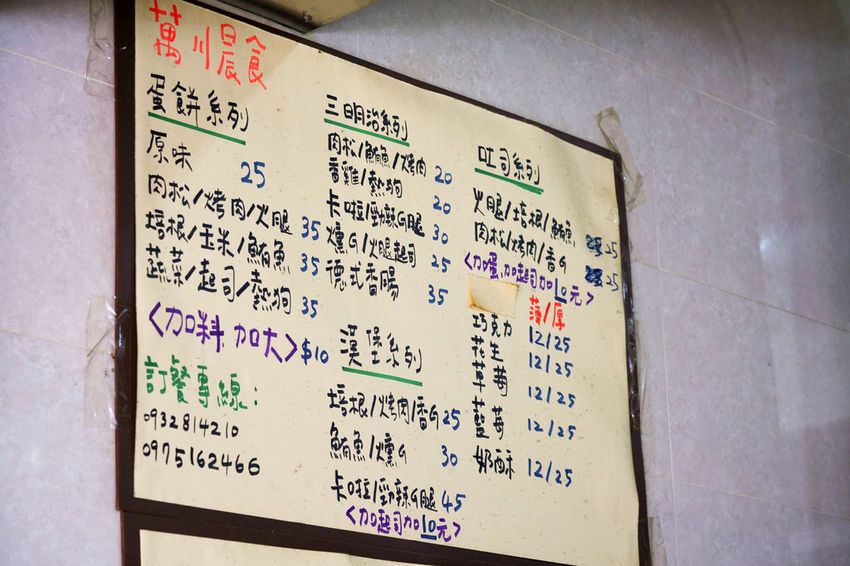 萬川晨食
蛋餅系列
原味 25
肉松/烤肉/火腿 35
培根/玉米/鮪魚 35
蔬菜/起司/熱狗 35
<加料 加大>$10
訂餐專線:
0932814210
0975162466
三明治系列
肉松/鮪魚/烤肉 20
香雞/熱狗 20
卡啦/勁辣G腿 30
燻G/火腿起司 25
德式香腸 35
漢堡系列
培根/烤肉/香G 25
鮪魚/燻G 30
卡啦/勁辣G腿 45
<加起司加10元>
吐司系列
火腿/培根/鮪魚 25
肉松/烤肉/香G 25
<加蛋.加起司加10元>
薄/厚
巧克力 12/25
花生 12/25
草莓 12/25
藍莓 12/25
奶酥 12/25